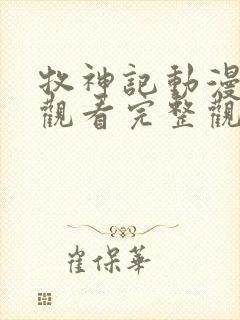 牧神記動漫
觀看完整觀
崔保華